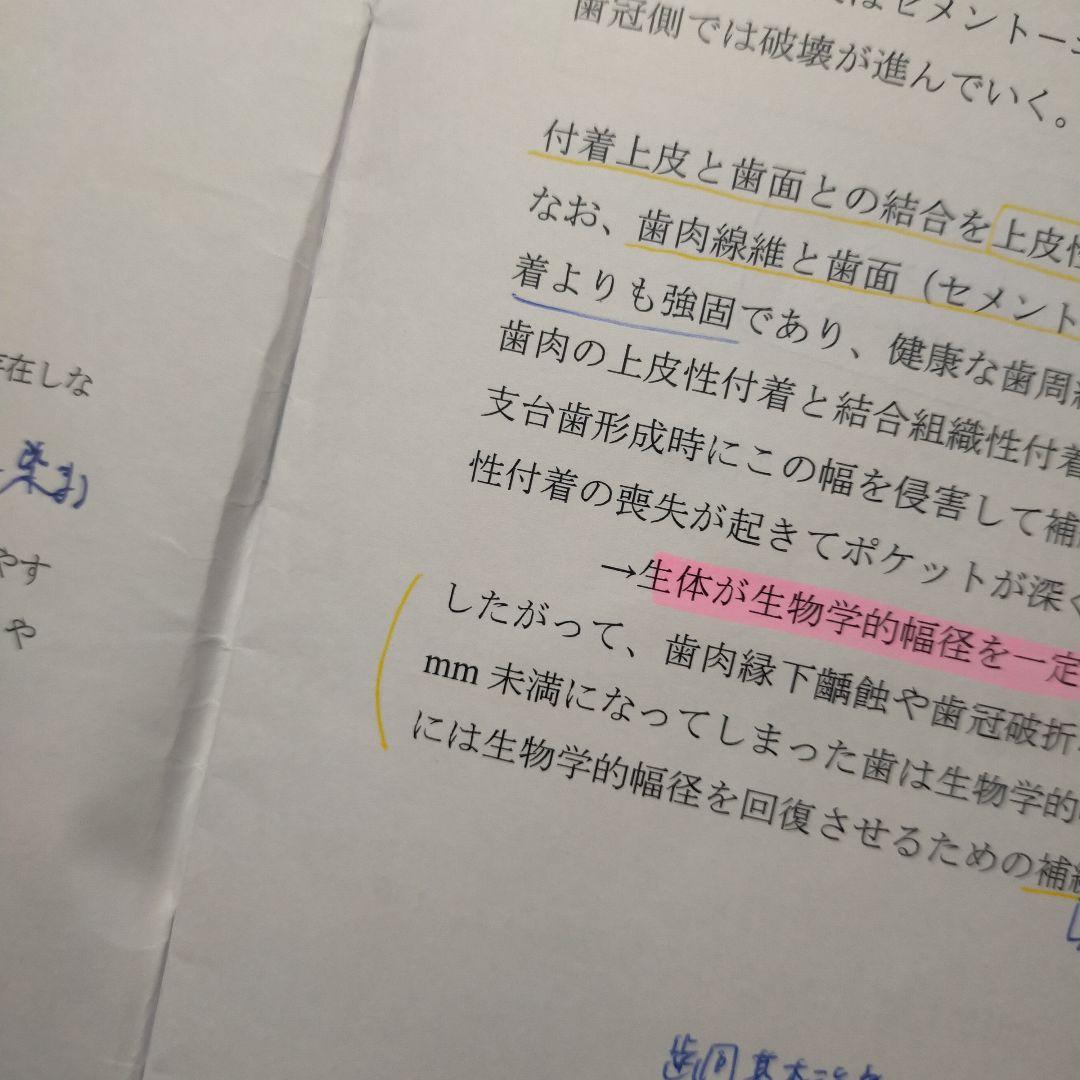 存在しな
染ま
やす
や
はセメントーエ
歯冠側では破壊が進んでいく。
付着上皮と歯面との結合を上皮性
なお、歯肉線維と歯面（セメント
着よりも強固であり、健康な歯周組
歯肉の上皮性付着と結合組織性付着
支台歯形成時にこの幅を侵害して補
性付着の喪失が起きてポケットが深く
→生体が生物学的幅径を一定
したがって、歯肉縁下齲蝕や歯冠破折
mm 未満になってしまった歯は生物学的
には生物学的幅径を回復させるための補綴
歯周基本